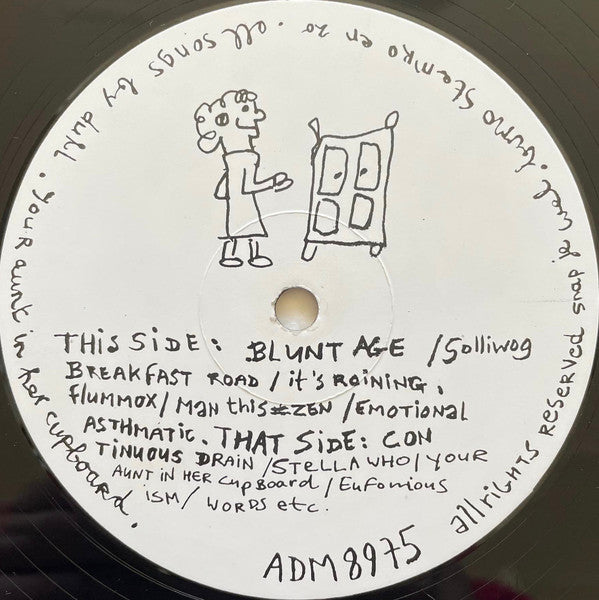 THIS SIDE: BLUNT AGE / Golliwog
BREAKFAST ROAD / it's RAINING,
flummox / MAN this ZEN / EMOTIONAL
ASTHMATIC. THAT SIDE: CON
TINUOUS DRAIN / STELLA WHO / YOUR
AUNT IN HER CUPBOARD / Eufonious
ISM / WORDS etc.
ADM 8975
all songs by duhl. your aunt in her cupboard.
allrights reserved snap je wel.
en zo.